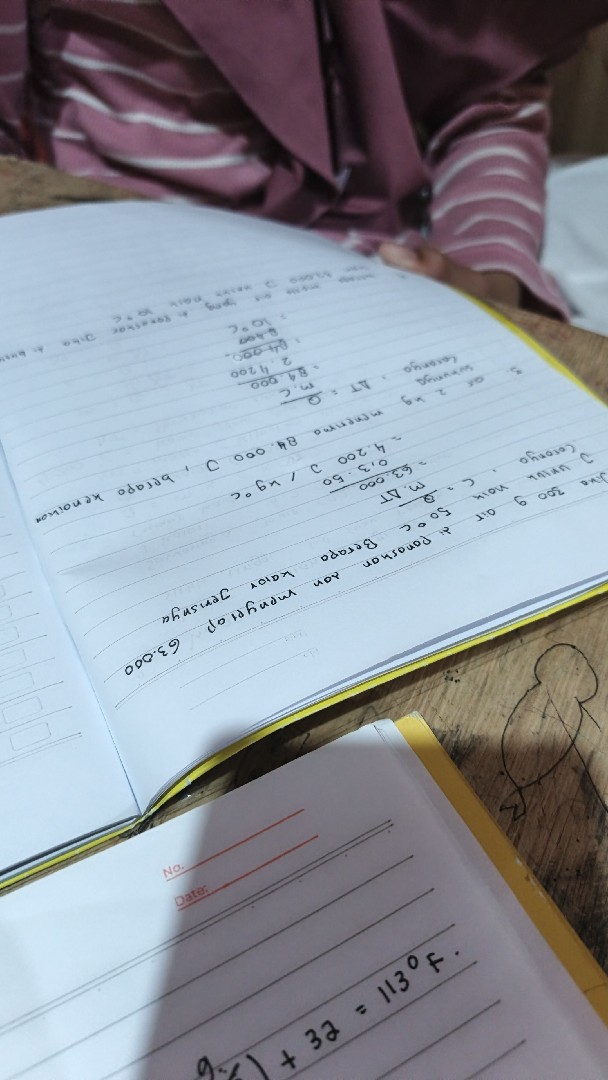 Jika 300 g air di panaskan dan menyerap 63.000
J untuk naik 50°C Berapa kalor jenisnya
Caranya : C = Q / m.ΔT
= 63.000 / 0,3.50
= 4 200 J / kg°C
3. air 2 kg menerima 84.000 J, berapa kenaikan
suhunya
Caranya = ΔT = Q / m.c
= 84 000 / 2.4200
= 84 000 / 8.400
= 10°C
massa air yang di panaskan Jika di
J untuk naik 10°C
No.
Date:
) + 32 = 113°F.